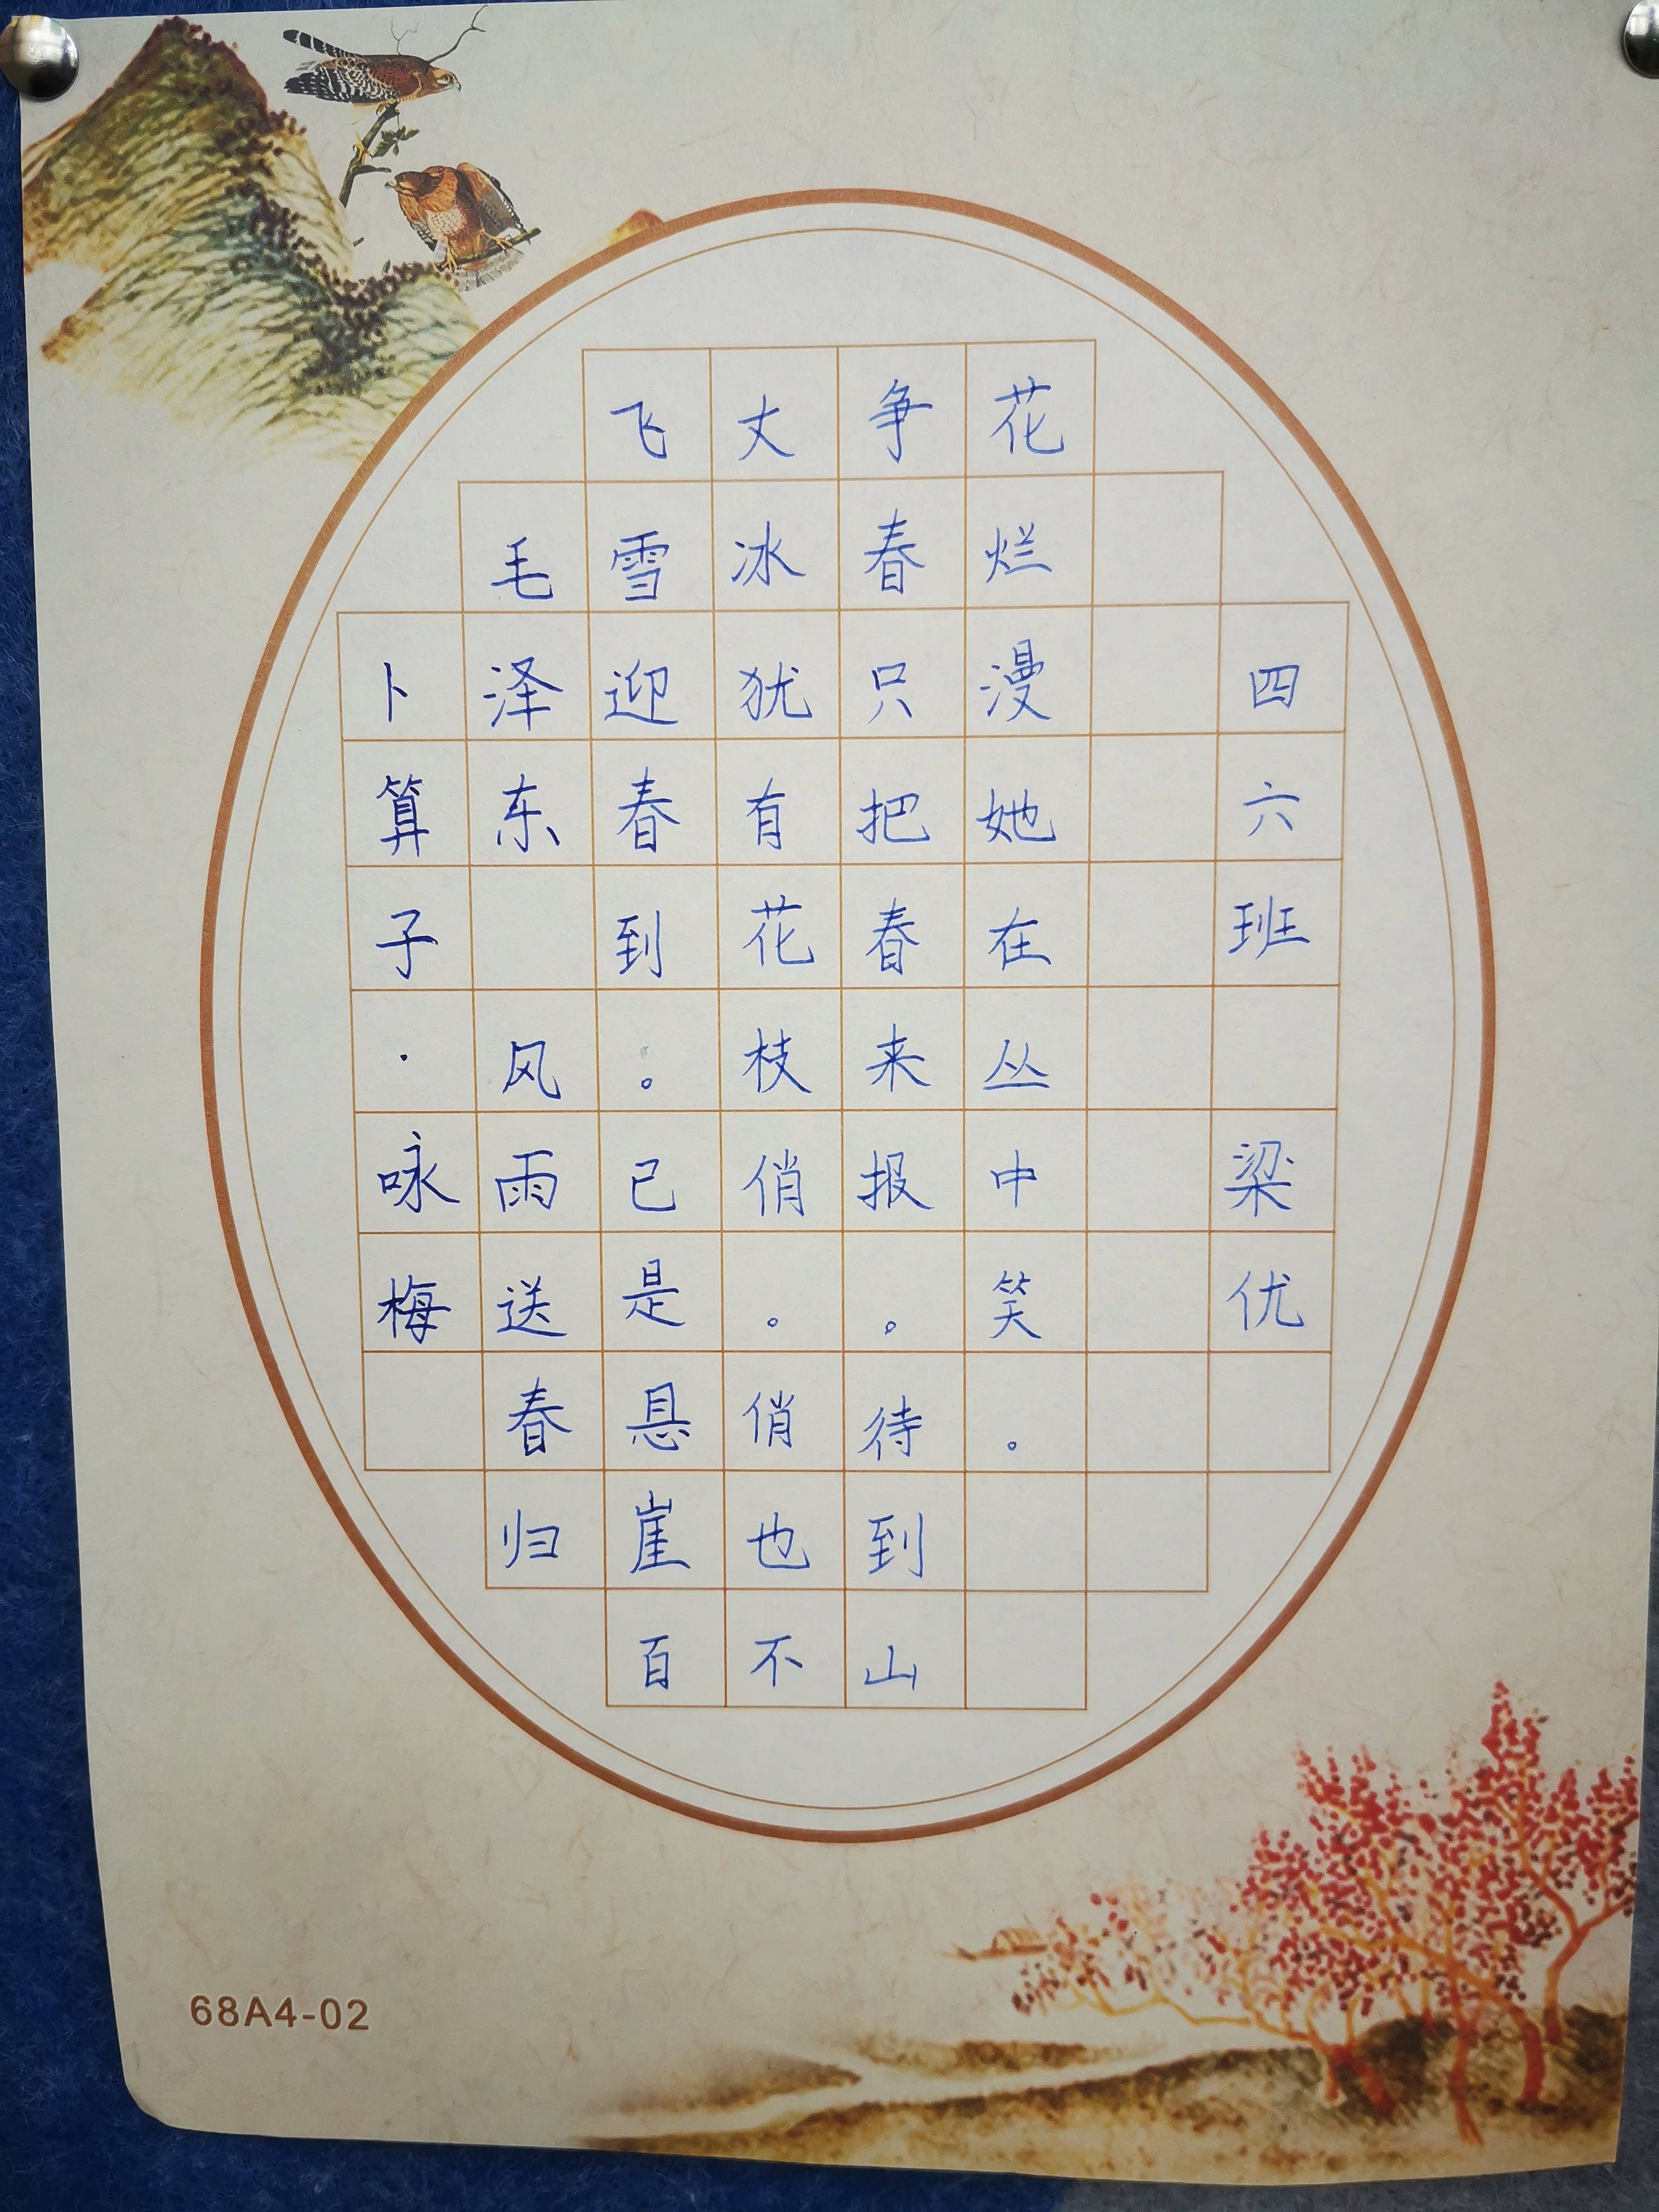 卜算子·咏梅
毛泽东 风雨送春归
飞雪迎春到。已是悬崖百
丈冰犹有花枝俏。俏也不
争春只把春来报。待到山
花烂漫她在丛中笑。
四六班 梁优
68A4-02